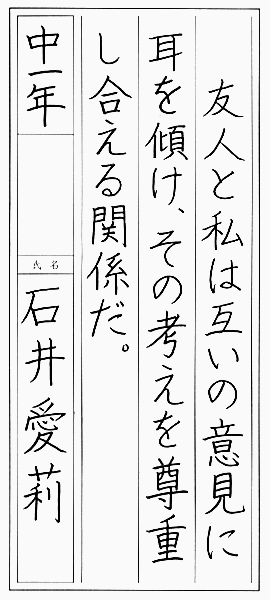 友人と私は互いの意見に
耳を傾け、その考えを尊重
し合える関係だ。
中一年
氏名
石井愛莉